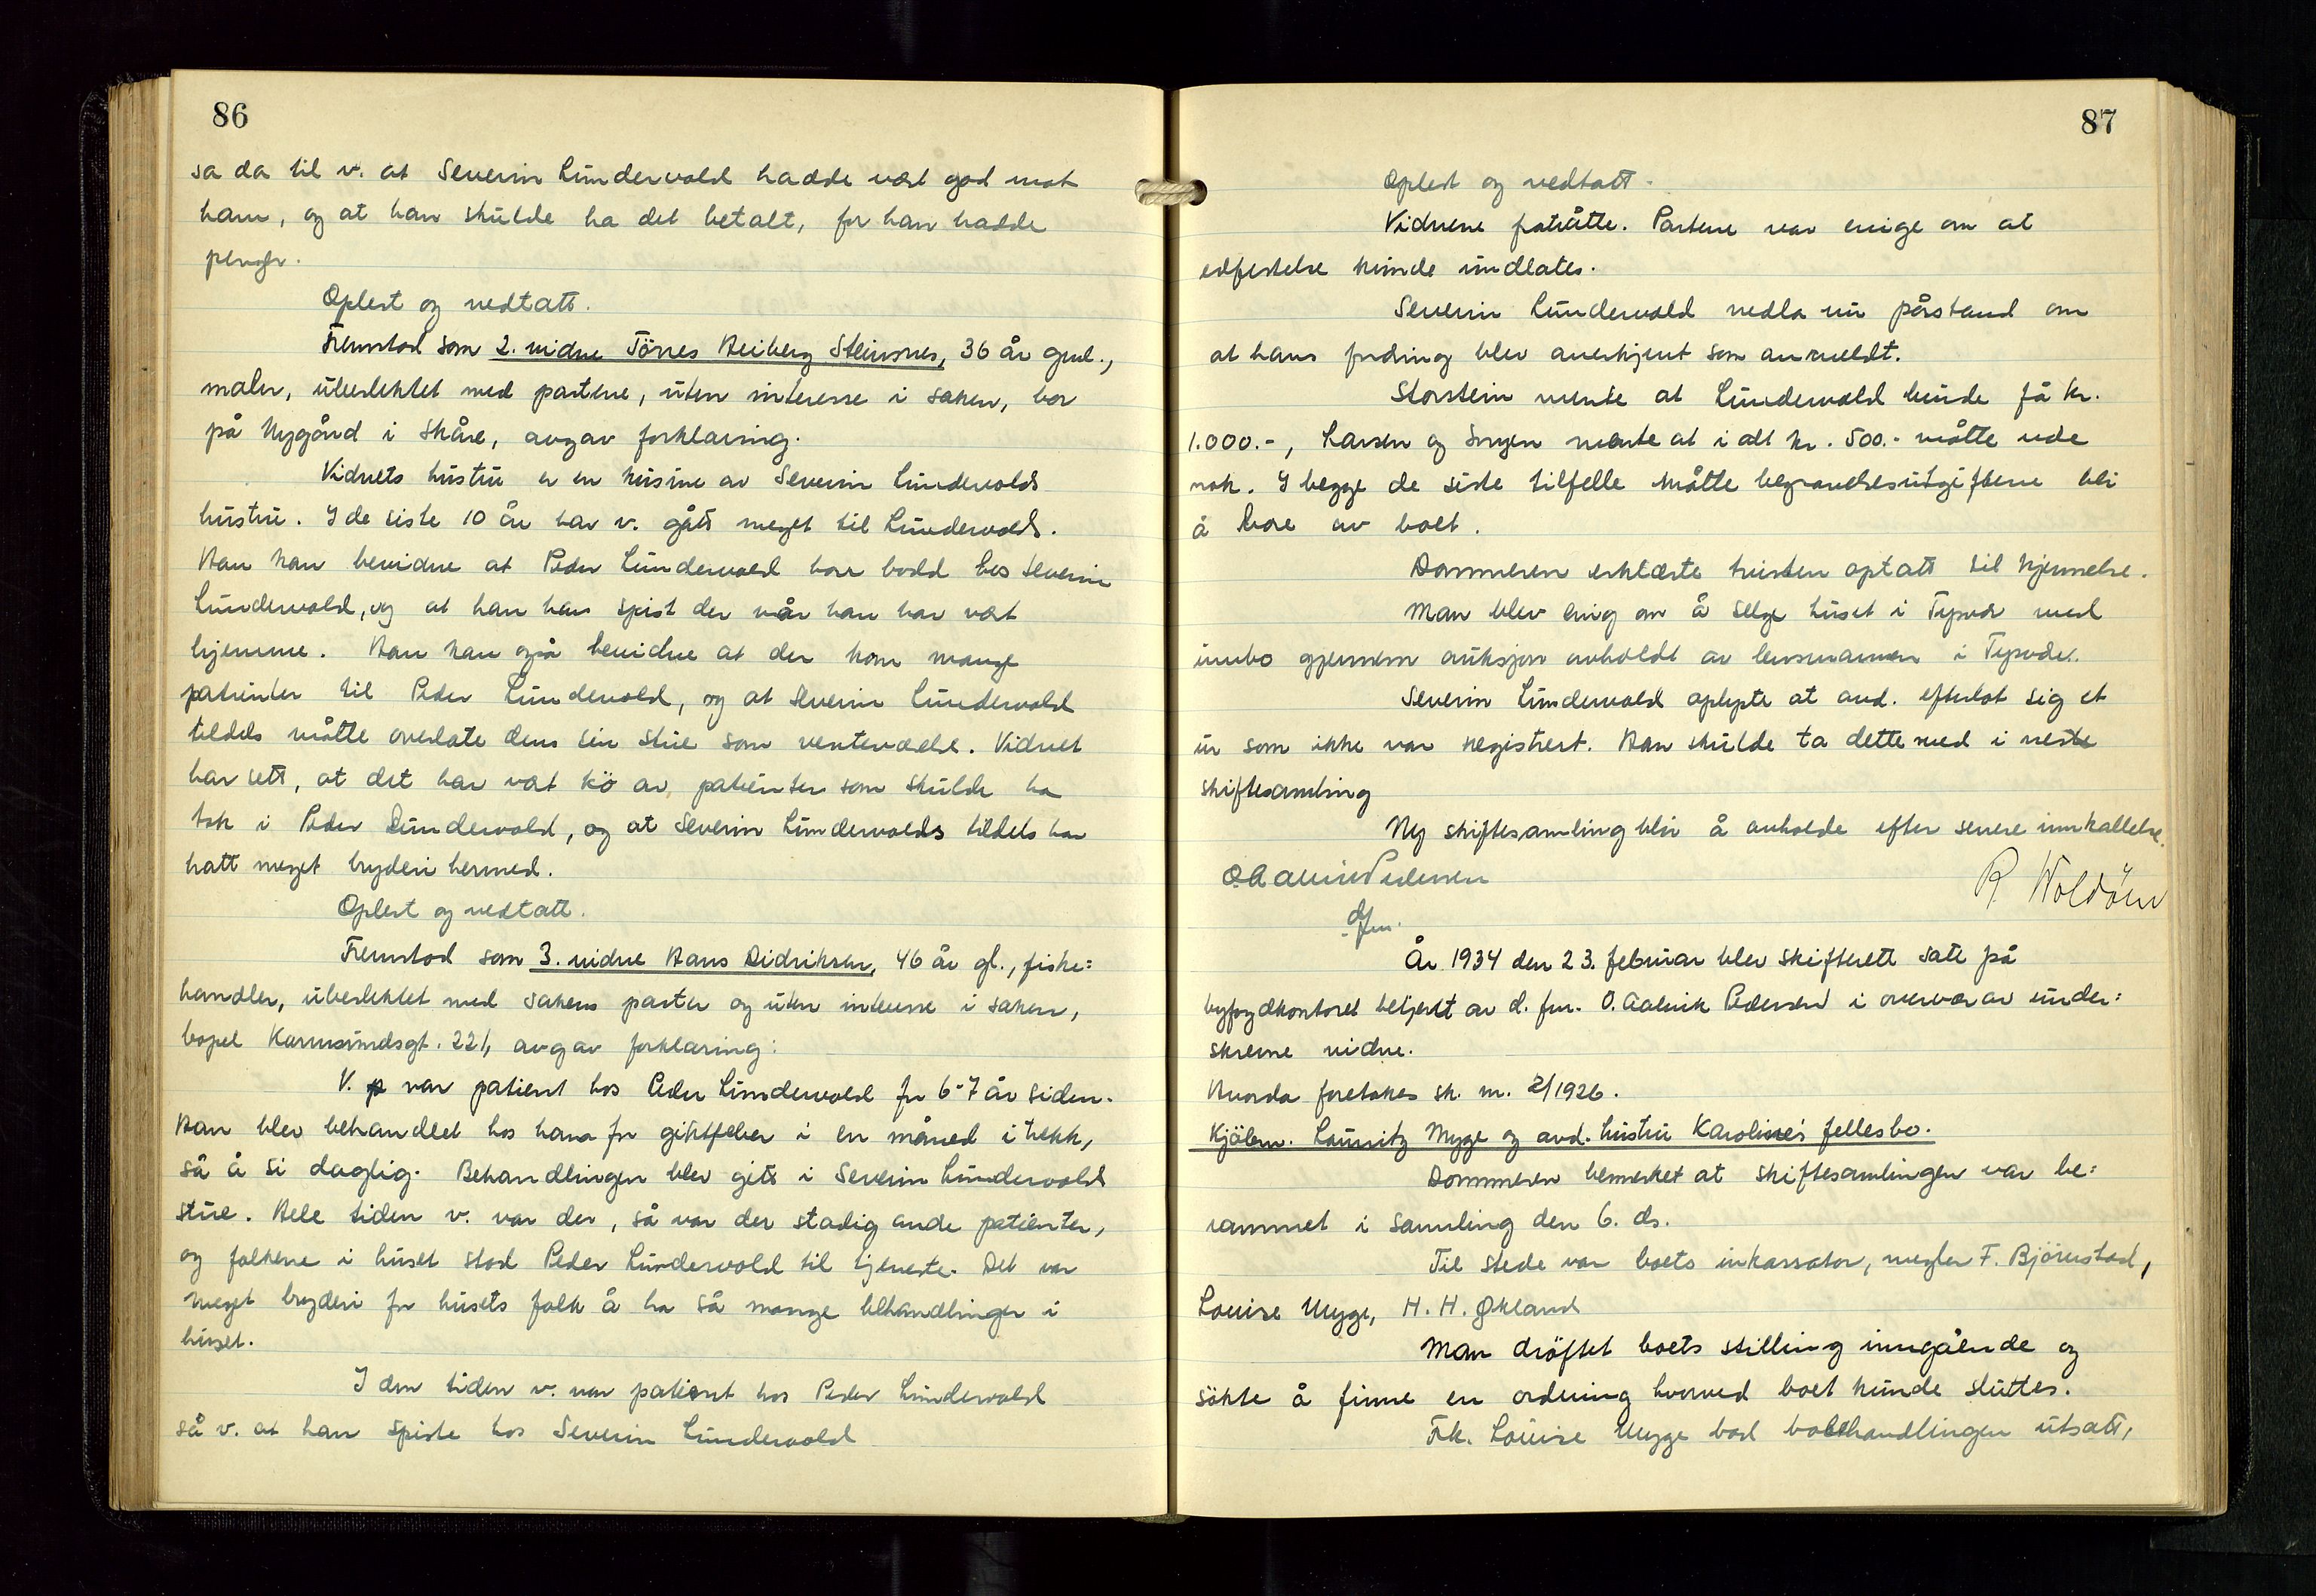 86
sa da til v. at Severin Lundervold hadde vært god mot
ham, og at han skulde ha det betalt, for han hadde
penger.
Oplest og vedtatt.
Fremstod som 2. vidne Törres Heiberg Steinsnes, 36 år gml.,
maler, ubeslektet med partene, uten interesse i saken, bor
på Nygård i Skåre, avgav forklaring.
Vidnets hustru er en kusine av Severin Lundervolds
hustru. I de siste 10 år har v. gått meget til Lundervolds.
Han kan bevidne at Peder Lundervold har bodd hos Severin
Lundervold, og at han har spist der når han har vært
hjemme. Han kan også bevidne at der kom mange
patienter til Peder Lundervold, og at Severin Lundervold
tildels måtte overlate dem sin stue som venteværelse. Vidnet
har sett, at det har vært kö av patienter som skulde ha
tak i Peder Lundervold, og at Severin Lundervolds tildels har
hatt meget bryderi hermed.
Oplest og vedtatt.
Fremstod som 3. vidne Hans Didriksen, 46 år gl., fiske=
handler, ubeslektet med sakens parter og uten interesse i saken,
bopel Karmsundsgt. 221, avgav forklaring:
V. var patient hos Peder Lundervold for 6-7 år siden.
Han blev behandlet hos ham for giktfeber i en måned i trekk,
så å si daglig. Behandlingen blev gitt i Severin Lundervolds
stue. Hele tiden v. var der, så var der stadig andre patienter,
og folkene i huset stod Peder Lundervold til tjeneste. Det var
meget bryderi for husets folk å ha så mange behandlinger i
huset.
I den tiden v. var patient hos Peder Lundervold
så v. at han spiste hos Severin Lundervold
87
Oplest og vedtatt.
Vidnene fratrådte. Partene var enige om at
edfestelse kunde undlates.
Severin Lundervold nedla nu påstand om
at hans fordring blev anerkjent som anmeldt.
Storstein mente at Lundervold burde få kr.
1.000.-, Larsen og mente at i alt kr. 500.- måtte være
nok. I begge de siste tilfelle måtte begravelsesutgiftene bli
å bære av boet.
Dommeren erklærte tvisten optatt til kjennelse.
Man blev enig om å selge huset i Tysvær med
innbo gjennem auksjon avholdt av lensmannen i Tysvær.
Severin Lundervold oplyste at avd. efterlot sig et
ur som ikke var registrert. Han skulde ta dette med i neste
skiftesamling
Ny skiftesamling blir å avholde efter senere innkallelse.
O. Aalvik Pedersen
dfm.
R. Woldöen
År 1934 den 23. februar blev skifterett satt på
byfogdkontoret betjent av d. fm. O. Aalvik Pedersen i overvær av under=
skrevne vidne.
Hvorda foretokes sk. nr. 2/1926.
Kjöbm. Lauritz Mygge og avd. hustru Karoline's fellesbo.
Dommeren bemerket at skiftesamlingen var be=
rammet i samling den 6. ds.
Til stede var boets inkassator, megler F. Björnstad,
Louise Mygge, H. H. Økland
Man dröftet boets stilling inngående og
sökte å finne en ordning hvorved boet kunde sluttes.
Frk. Louise Mygge bad bobehandlingen utsatt,